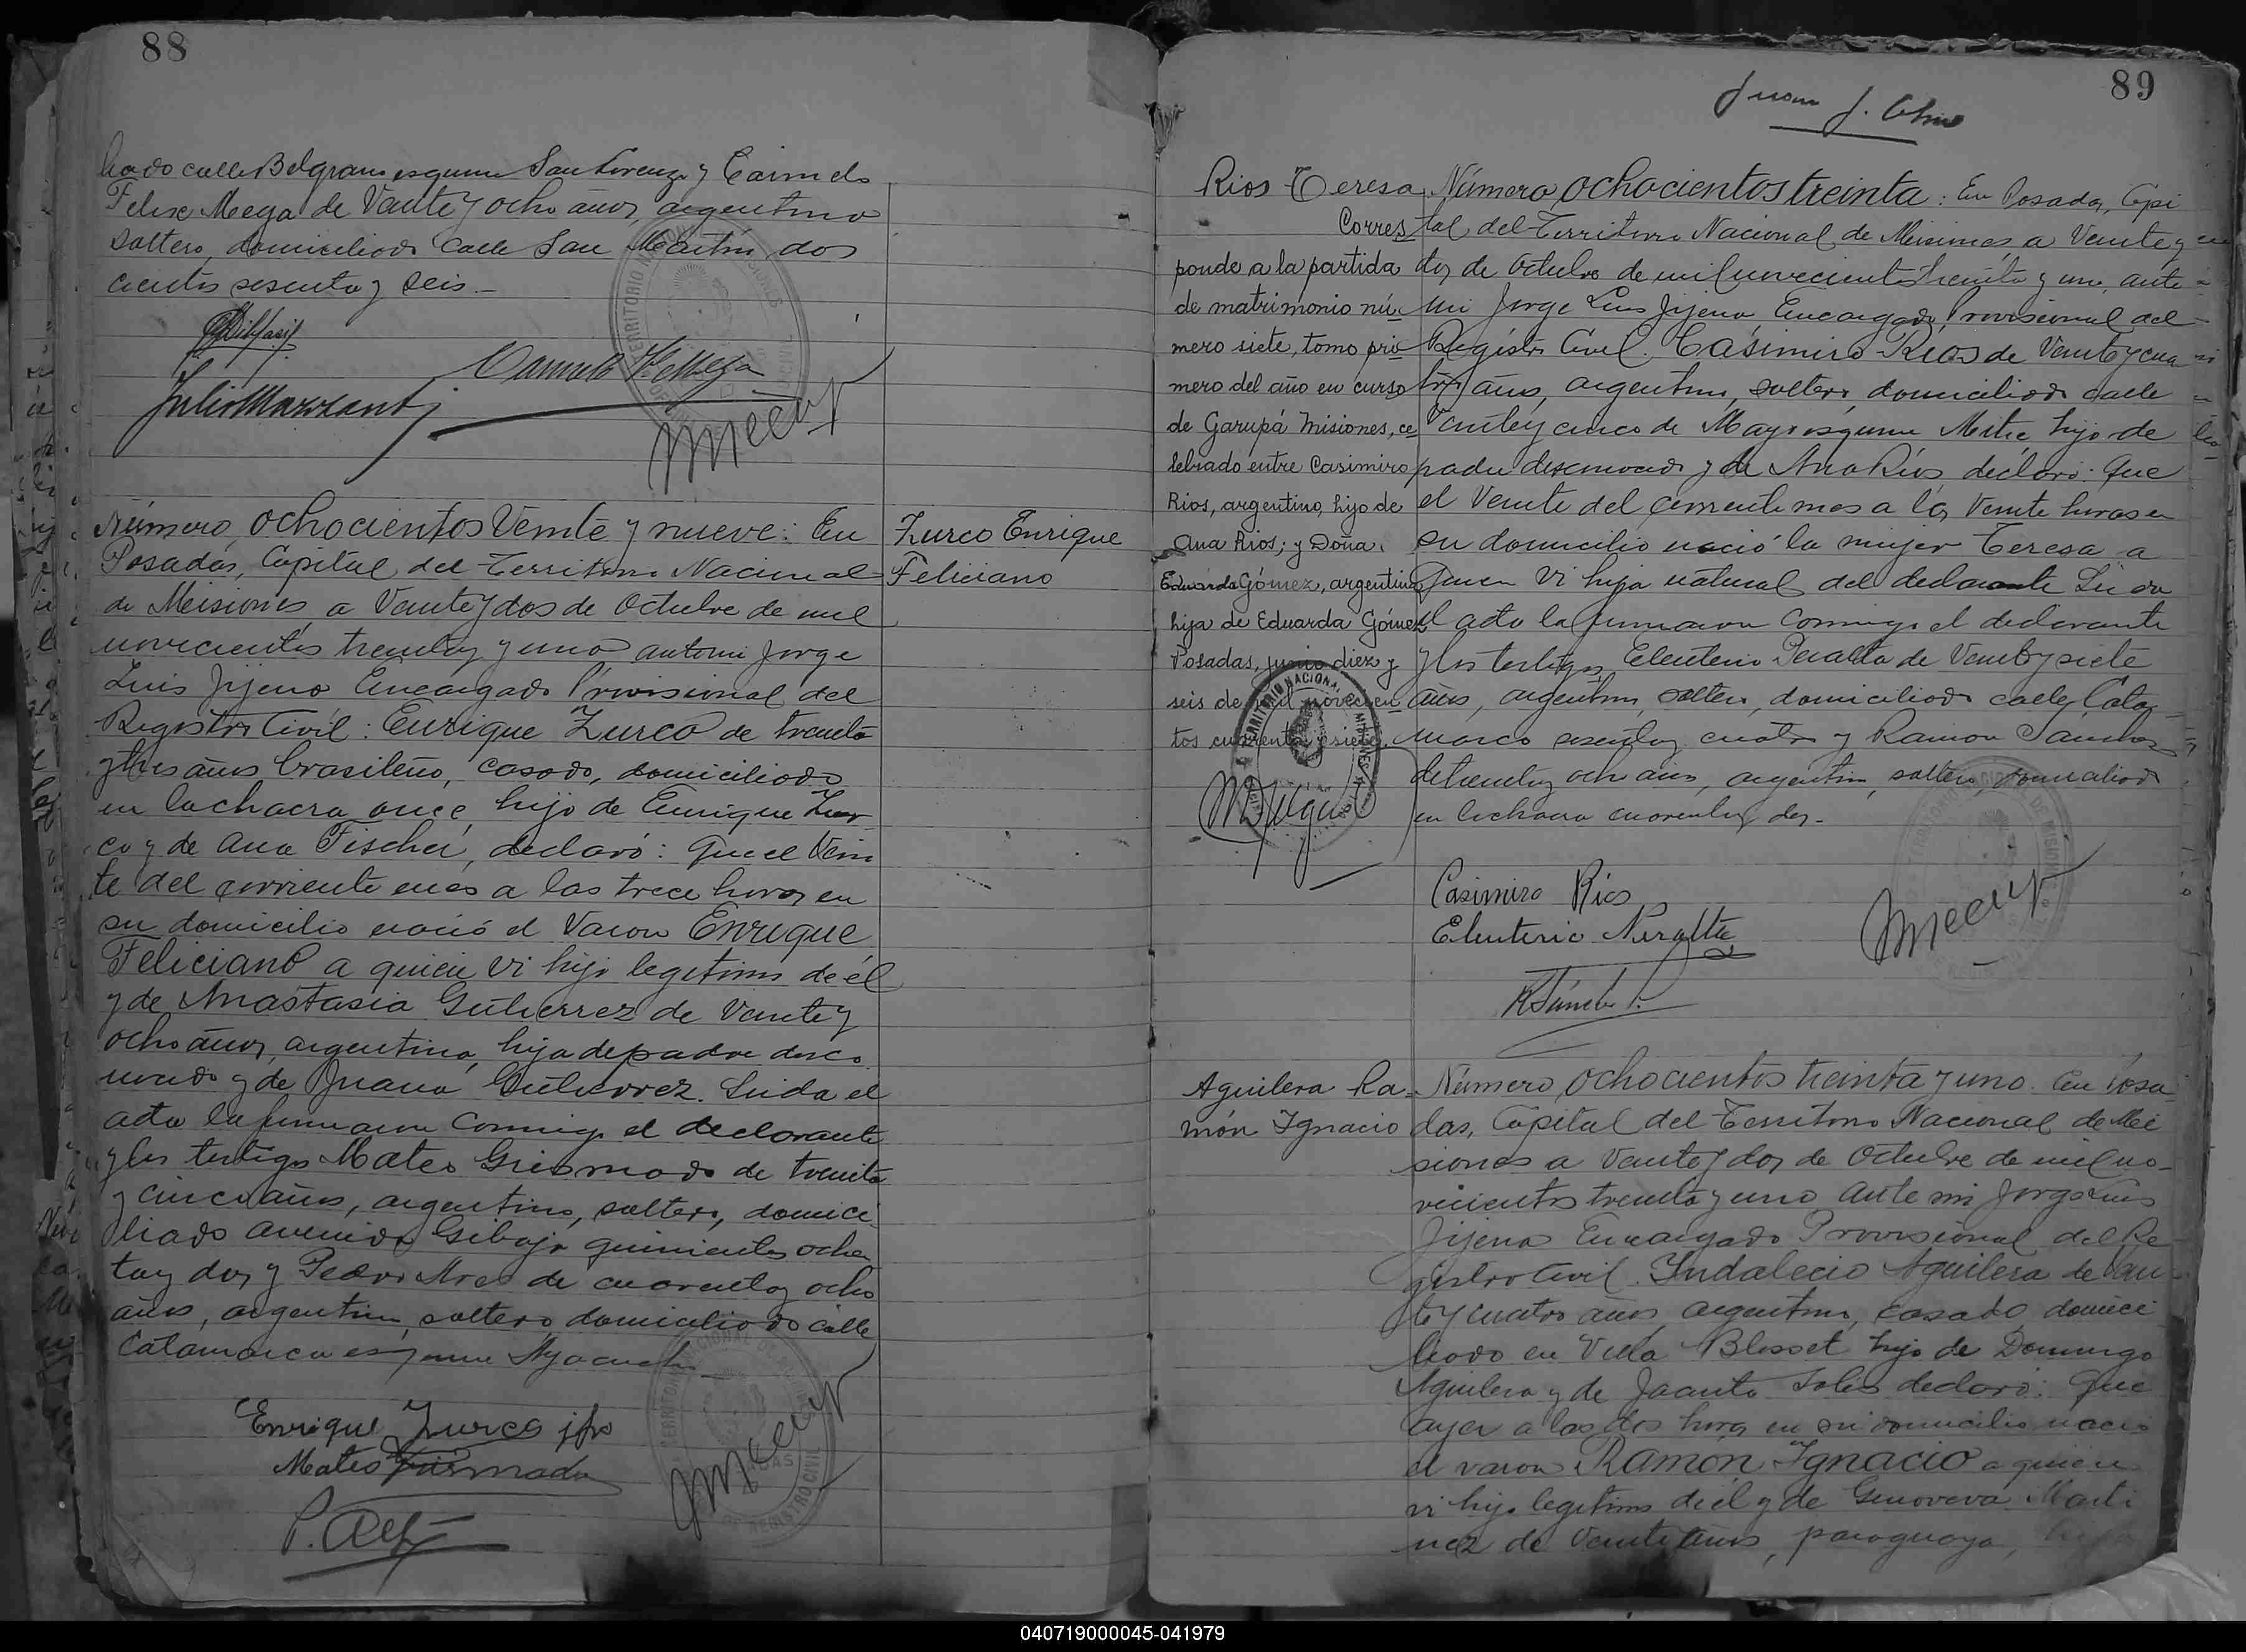 88
liado calle Belgrano esquina San Lorenzo y Carmelo
Felix Mega de Veinte y ocho años, argentino
soltero, domiciliado calle San Martín dos
cientos sesenta y seis.-
Julio Mazzanti
Carmelo F. Mega
Número ochocientos Veinte y nueve: En
Posadas, Capital del Territorio Nacional
de Misiones, a Veinte y dos de Octubre de mil
novecientos treinta y uno ante mi Jorge
Luis Jijena Encargado Provisional del
Registro Civil: Enrique Zurco de treinta
y tres años brasileño, casado, domiciliado
en la chacra once, hijo de Enrique Zur
co y de Ana Fischer, declaró: Que el Vein
te del corriente mes a las trece horas en
su domicilio nació el Varon Enrique
Feliciano a quien vi hijo legitimo de él
y de Anastasia Gutierrez de Veinte y
ocho años, argentina, hija de padre desco
nocido y de Juana Gutierrez. Leida el
acta la firmaron conmigo el declarante
y los testigos Mateo Grismado de treinta
y cinco años, argentino, soltero, domici
liado avenida Gibaja quinientos ochen
ta y dos y Pedro de cuarenta y ocho
años, argentino, soltero domiciliado calle
Catamarca esquina Ayacucho
Enrique Zurco
Mateo Grismado
Zurco Enrique
Feliciano
89
Juan J.
Rios Teresa
Corres
ponde a la partida
de matrimonio nú-
mero siete, tomo pri
mero del año en curso
de Garupá Misiones, ce
lebrado entre Casimiro
Rios, argentino, hijo de
Ana Rios; y Doña
Eduarda Gómez, argentina
hija de Eduarda Gómez
Posadas, junio diez y
seis de mil novecien
tos cuarenta y siete.
Número ochocientos treinta: En Posadas, Capi
tal del Territorio Nacional de Misiones, a Veinte y
dos de Octubre de mil novecientos treinta y uno, ante
mi Jorge Luis Jijena Encargado Provisional del
Registro Civil. Casimiro Rios de Veinte y cua
tro años, argentino, soltero, domiciliado calle
Veinte y cinco de Mayo esquina Mitre hijo de
padre desconocido y de Ana Rios, declaró: Que
el Veinte del corriente mes a las Veinte horas en
su domicilio nació la mujer Teresa a
quien vi hija natural del declarante Leida
el acta la firmaron conmigo el declarante
y los testigos Eleuterio Peralta de Veinte y siete
años, argentino, soltero, domiciliado calle Cata
marca sesenta y cuatro y Ramon Sanchez
de treinta y ocho años, argentino, soltero, domiciliado
en la chacra cuarenta y dos.-
Casimiro Rios
Eleuterio Peralta
Aguilera Ra-
món Ignacio
Número ochocientos treinta y uno. En Posa
das, Capital del Territorio Nacional de Mi
siones a Veinte y dos de Octubre de mil no-
vecientos treinta y uno ante mi Jorge Luis
Jijena Encargado Provisional del Re
gistro Civil. Indalecio Aguilera de Vein
te y cuatro años, argentino, casado, domici
liado en Villa Blosset hijo de Domingo
Aguilera y de Jacinta Solis declaró: Que
ayer a las dos horas en su domicilio nació
el varon Ramón Ignacio a quien
vi hijo legitimo de él y de Genoveva Marti
nez de Veinte años, paraguaya, hija
040719000045-041979